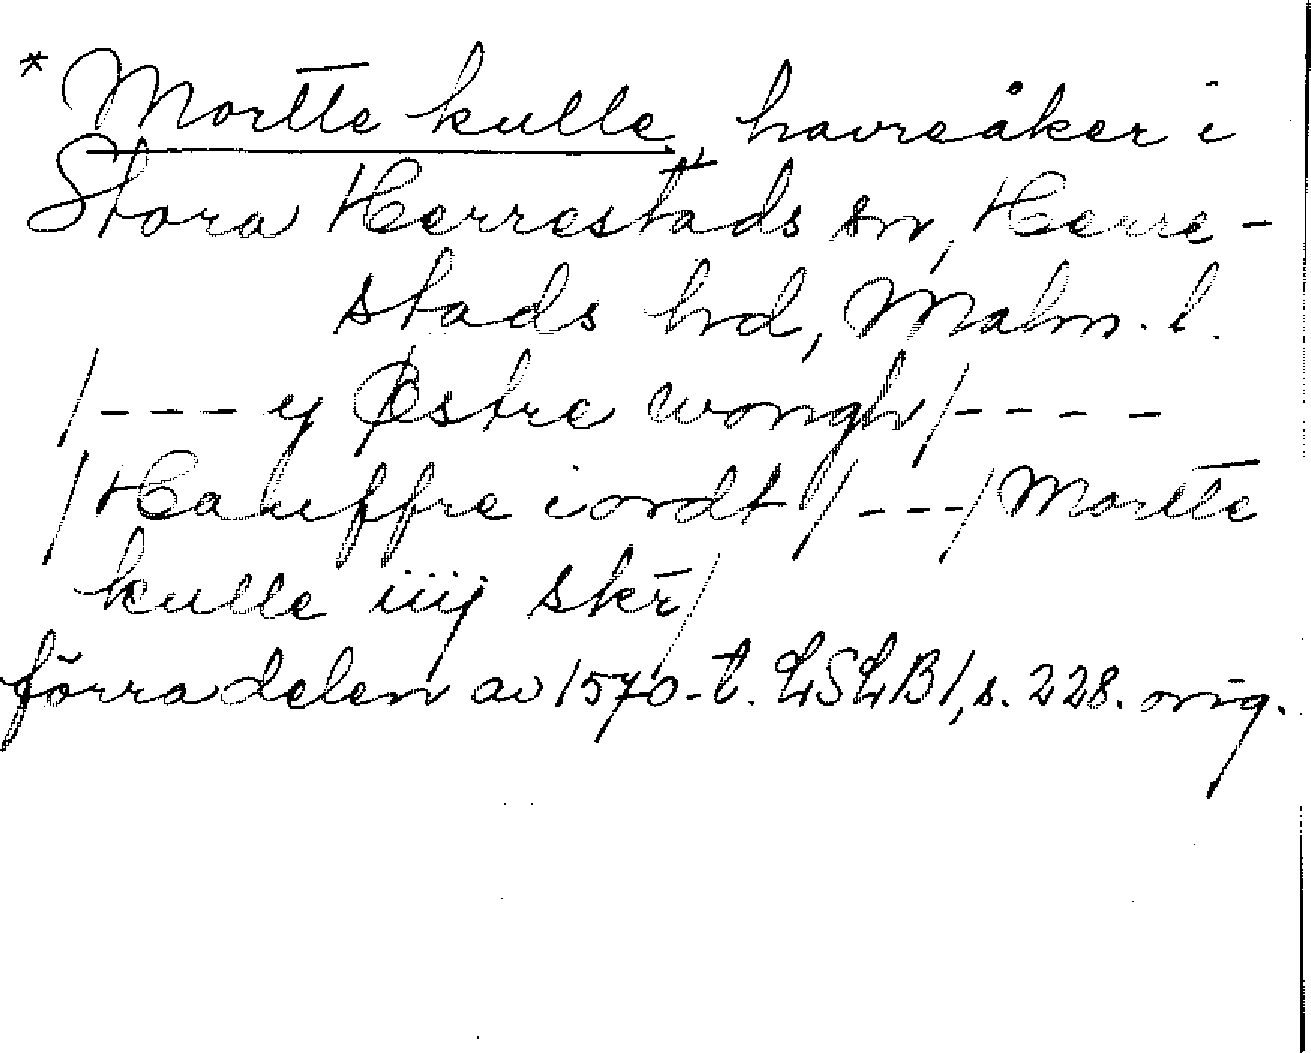 * Mortte kulle, havreåker i
Stora Herrestads sn, Herre-
stads hd, Malm. l.
/---y Østre wongh/----
/Hauffre iordt/---/Mortte
kulle iiij skr̄/
förra delen av 1570-t. LSLB1, s. 228. orig.